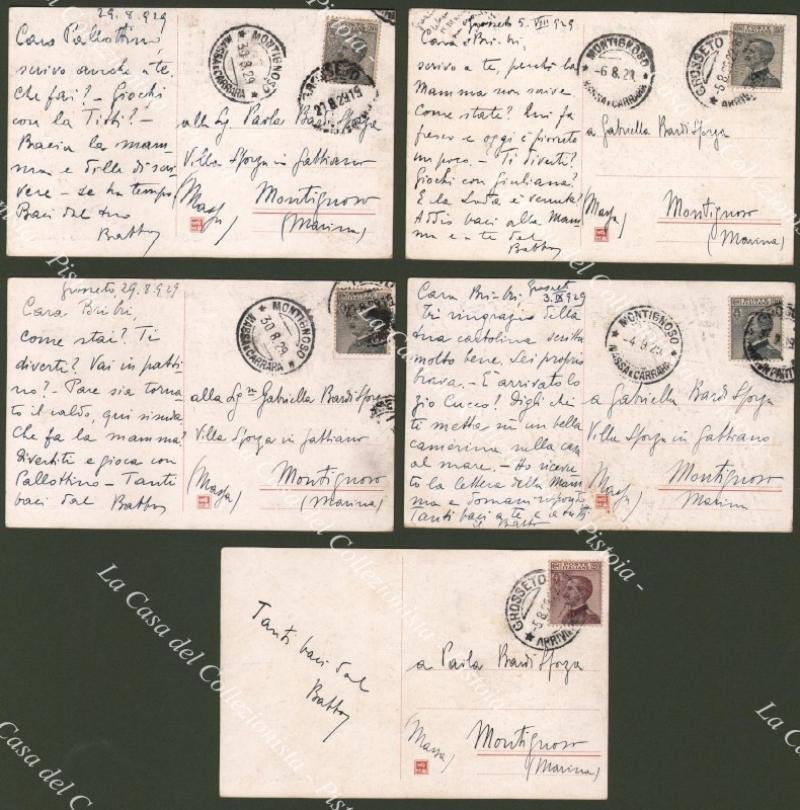 29.8.929
Caro Pallottino,
scrivo anche a te.
Che fai? - Giochi
con la Titti? -
Bacia la mam-
ma e dille di scri-
vere - se ha tempo
Baci dal tuo
Babbo
MONTIGNOSO
30.8.29
MASSA E CARRARA
GROSSETO
alla Sig. Paola Bardi Sforza
Villa Sforza in Gabbiano
(Massa)
Montignoso
(Marina)
Grosseto 5. VIII 929
Cara Bri-bri,
scrivo a te, perché la
Mamma non scrive.
Come state? Qui fa
fresco e oggi è piovuto
un poco. - Ti diverti?
Giochi con Giuliana?
E la è venuta?
Addio baci alla Mam-
ma e a te dal
Babbo
MONTIGNOSO
-6.8.29
MASSA E CARRARA
GROSSETO
5.8.29
ARRIVI
a Gabriella Bardi Sforza
(Massa)
Montignoso
(Marina)
Grosseto, 29.8.929
Cara Bribri,
come stai? Ti
diverti? Vai in patti-
no? - Pare sia torna-
to il caldo, qui si suda.
Che fa la mamma?
Divertiti e gioca con
Pallottino - Tanti
baci dal Babbo
MONTIGNOSO
30.8.29
MASSA E CARRARA
alla Sig.na Gabriella Bardi Sforza
Villa Sforza in Gabbiano
(Massa)
Montignoso
(Marina)
Grosseto
3. IX 929
Cara Bri-bri,
Ti ringrazio della
tua cartolina scritta
molto bene. Sei proprio
brava. - È arrivato lo
zio Cucco? Digli che
ti metta in un bella
camerina nella casa
al mare. - Ho ricevu-
to la lettera della Mam-
ma e domani rispondo
Tanti baci a te e a tutti
il Babbo
MONTIGNOSO
MASSA E CARRARA
a Gabriella Bardi Sforza
Villa Sforza in Gabbiano
(Massa)
Montignoso
Marina
Tanti baci dal
Babbo
GROSSETO
-5.8.29
ARRIVI
a Paola Bardi Sforza
(Massa)
Montignoso
(Marina)
La Casa del Collezionista - Pistoia -